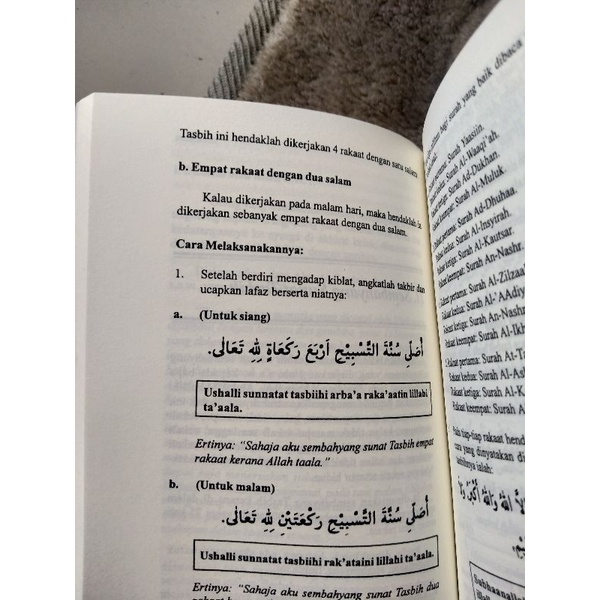 Tasbih ini hendaklah dikerjakan 4 rakaat dengan satu salam
b. Empat rakaat dengan dua salam
Kalau dikerjakan pada malam hari, maka hendaklah
dikerjakan sebanyak empat rakaat dengan dua salam.
Cara Melaksanakannya:
1. Setelah berdiri mengadap kiblat, angkatlah takbir dan
ucapkan lafaz berserta niatnya:
a. (Untuk siang)
أُصَلِّى سُنَّةَ التَّسْبِيْحِ أَرْبَعَ رَكَعَاةٍ لِلّٰهِ تَعَالَى.
Ushalli sunnatat tasbiihi arba'a raka'aatin lillahi
ta'aala.
Ertinya: "Sahaja aku sembahyang sunat Tasbih empat
rakaat kerana Allah taala."
b. (Untuk malam)
أُصَلِّى سُنَّةَ التَّسْبِيْحِ رَكْعَتَيْنِ لِلّٰهِ تَعَالَى.
Ushalli sunnatat tasbiihi rak'ataini lillahi ta'aala.
Ertinya: "Sahaja aku sembahyang sunat Tasbih dua
surah yang baik dibaca
pertama: Surah Yaasiin.
Surah Al-Waaqi'ah.
Surah Ad-Dukhan.
keempat: Surah Al-Muluk
pertama: Surah Ad-Dhuhaa.
kedua: Surah Al-Insyirah.
Rakaat ketiga: Surah Al-Kautsar.
Rakaat keempat: Surah An-Nashr.
Rakaat pertama: Surah Al-Zilzaa
Rakaat kedua: Surah Al-'AAdiy
Rakaat ketiga: Surah An-Nashr
Rakaat keempat: Surah Al-Ikh
Rakaat pertama: Surah At-Ta
Rakaat kedua: Surah Al-As
Rakaat ketiga: Surah Al-K
Rakaat keempat: Surah Al-
tiap-tiap rakaat hend
cara yang dinyatakan di
ialah:
اللهُ وَاللهُ أَكْبَرُ
Subhaanallah